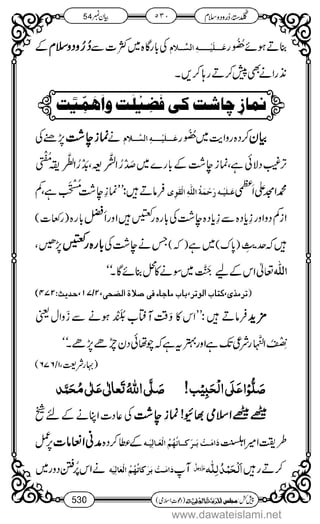 گلدستۂ دُرودوسلام ۵۳۰ بیان نمبر 54
بناتے ہوئے حُضُور عَلَیْہِ السَّلَام کی بارگاہ میں کثرت سے دُرُودوسلام کے
نذرانے بھی پیش کرتے رہا کریں۔
نمازِ چاشت کی فضیلت و اَھَمِّیَّت
بیان کردہ روایت میں حُضُور عَلَیْہِ السَّلَام نے نمازِ چاشت پڑھنے کی
ترغیب دلائی ہے، نمازِ چاشت کے بارے میں صَدْرُ الشَّرِیْعَہ، بَدْرُ الطَّرِیْقَہ مُفْتِی
محمد امجد علی اعظمی عَلَیْہِ رَحْمَۃُ اللّٰہِ الْقَوِی فرماتے ہیں: ’’نمازِ چاشت مُسْتَحَب ہے، کم
از کم دو اور زِیادہ سے زِیادہ چاشت کی بارہ رکعتیں ہیں اور اَفضل بارہ (رکعات)
ہیں کہ حدیثِ (پاک) میں ہے (کہ) جس نے چاشت کی بارہ رکعتیں پڑھیں،
اللّٰہ تعالیٰ اس کے لیے جَنَّت میں سونے کا محل بنائے گا۔‘‘
(ترمذی، کتاب الوتر، باب ماجاء فی صلاۃ الضحی، ۱۷/۲، حدیث: ۴۷۲)
مزید فرماتے ہیں: ’’اس کا وَقت آفتاب بُلَنْد ہونے سے زَوال یعنی
نِصْفُ النَّہار شرعی تک ہے اور بہتر یہ ہے کہ چوتھائی دن چڑھے پڑھے۔‘‘
(بہارِ شریعت، ۶۷۶/۱)
صَلُّوْا عَلَی الْحَبِیْب! صَلَّی اللّٰہُ تَعَالٰی عَلٰی مُحَمَّد
میٹھے میٹھے اسلامی بھائیو! نمازِ چاشت کی عادت اپنانے کے لئے شیخِ
طریقت امیرِ اہلسنت دَامَتْ بَرَکَاتُہُمُ الْعَالِیَہ کے عطا کردہ مدنی انعامات پر عمل
کرتے رہیں اَلْحَمْدُ لِلّٰہ عَزَّوَجَلَّ آپ دَامَتْ بَرَکَاتُہُمُ الْعَالِیَہ نے اس پُرفتن دور میں
530 پیش کش: مجلس اَلْمَدِیْنَۃُ الْعِلْمِیَّۃ (دعوتِ اسلامی)
www.dawateislami.net